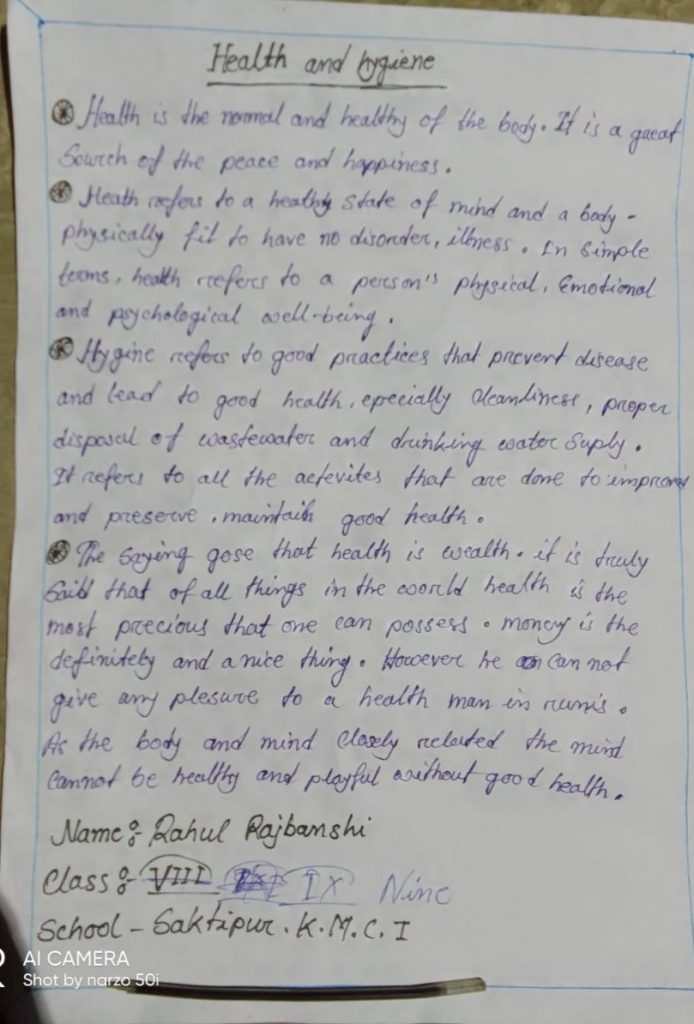 Health and hygiene
Health is the normal and healthy of the body. It is a great
Sourch of the peace and happiness.
Heath refers to a heathy state of mind and a body -
physically fit to have no disorder, illness. In simple
terms, health refers to a person's physical, Emotional
and psychological well-being.
Hygine refers to good practices that prevent disease
and lead to good health, epecially cleanliness, proper
disposal of wastewater and drinking water suply.
It refers to all the actevites that are done to improve
and preserve, maintain good health.
The saying gose that health is wealth. it is truly
Said that of all things in the world health is the
most precious that one can possess. money is the
definitely and a nice thing. However he can not
give any plesure to a health man in
As the body and mind closely related the mind
cannot be healthy and playful without good health.
Name:- Rahul Rajbanshi
Class:- VIII IX Nine
School - Saktipur. K.M.C.I
AI CAMERA
Shot by narzo 50i